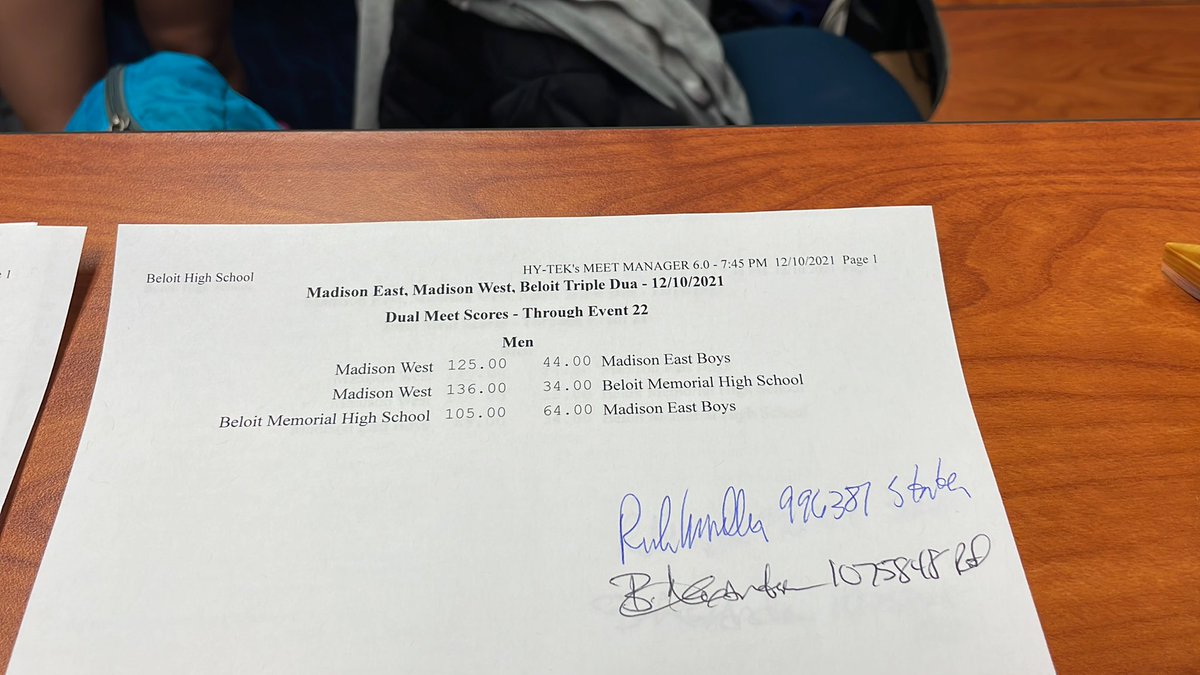 e 1
Beloit High School
HY-TEK's MEET MANAGER 6.0 - 7:45 PM 12/10/2021 Page 1
Madison East, Madison West, Beloit Triple Dua - 12/10/2021
Dual Meet Scores - Through Event 22
Men
Madison West 125.00 44.00 Madison East Boys
Madison West 136.00 34.00 Beloit Memorial High School
Beloit Memorial High School 105.00 64.00 Madison East Boys
996387 Starter
1075848